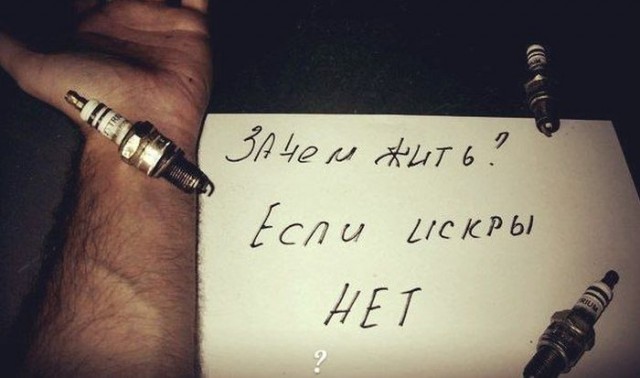 Зачем жить?
Если искры
НЕТ
?